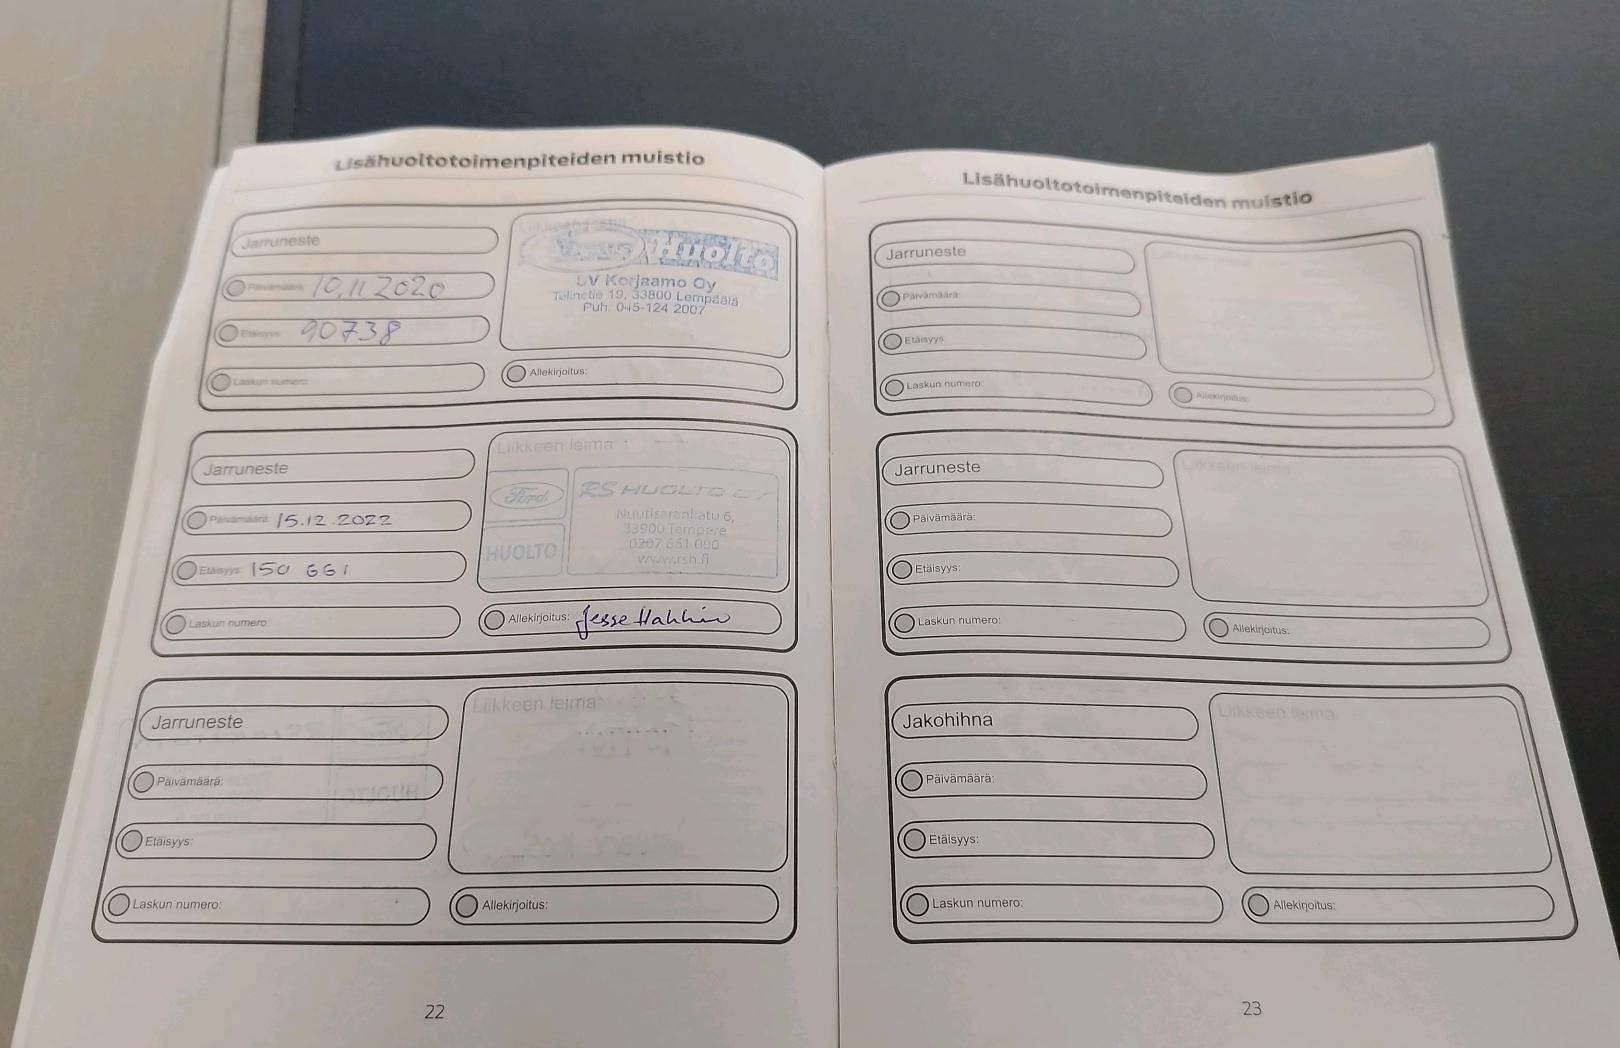 Lisähuoltotoimenpiteiden muistio
Jarruneste
Päivämäärä: 10.11 2020
Etäisyys: 90738
Laskun numero:
Huolto
SV Korjaamo Oy
33800 Lempäälä
Puh. 045-124 2007
Allekirjoitus:
Jarruneste
Päivämäärä: 15.12.2022
Etäisyys: 150 661
Laskun numero:
Liikkeen leima
Ford
HUOLTO
RS HUOLTO OY
Nuutisarankatu 6,
33900 Tampere
0207 661 000
www.rsh.fi
Allekirjoitus: Jesse
Jarruneste
Päivämäärä:
Etäisyys:
Laskun numero:
Liikkeen leima
Allekirjoitus:
22
Lisähuoltotoimenpiteiden muistio
Jarruneste
Päivämäärä:
Etäisyys:
Laskun numero:
Allekirjoitus:
Jarruneste
Päivämäärä:
Etäisyys:
Laskun numero:
Liikkeen leima
Allekirjoitus:
Jakohihna
Päivämäärä:
Etäisyys:
Laskun numero:
Liikkeen leima
Allekirjoitus:
23